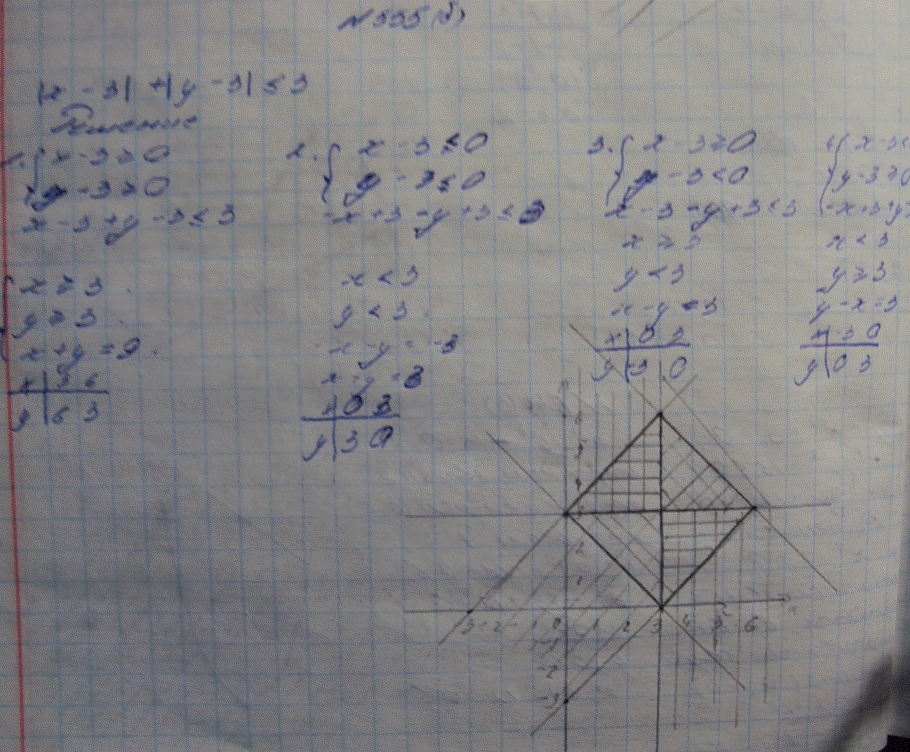 №555(б)
|x - 3| + |y - 3| ≤ 3
Решение
1. { x - 3 ≥ 0
y - 3 ≥ 0
x - 3 + y - 3 ≤ 3
{ x ≥ 3
y ≥ 3
x + y = 9
x | 3 6
y | 6 3
2. { x - 3 ≤ 0
y - 3 ≤ 0
-x + 3 - y + 3 ≤ 3
x < 3
y < 3
-x - y = -3
x + y = 3
x | 0 3
y | 3 0
3. { x - 3 ≥ 0
y - 3 < 0
x - 3 - y + 3 ≤ 3
x ≥ 3
y < 3
x - y = 3
x | 0 3
y | -3 0
{ x - 3 <
y - 3 ≥ 0
-x + 3 + y
x < 3
y ≥ 3
y - x = 3
x | -3 0
y | 0 3
6
5
4
3
2
1
-3 -2 -1 0 1 2 3 4 5 6
-1
-2
-3